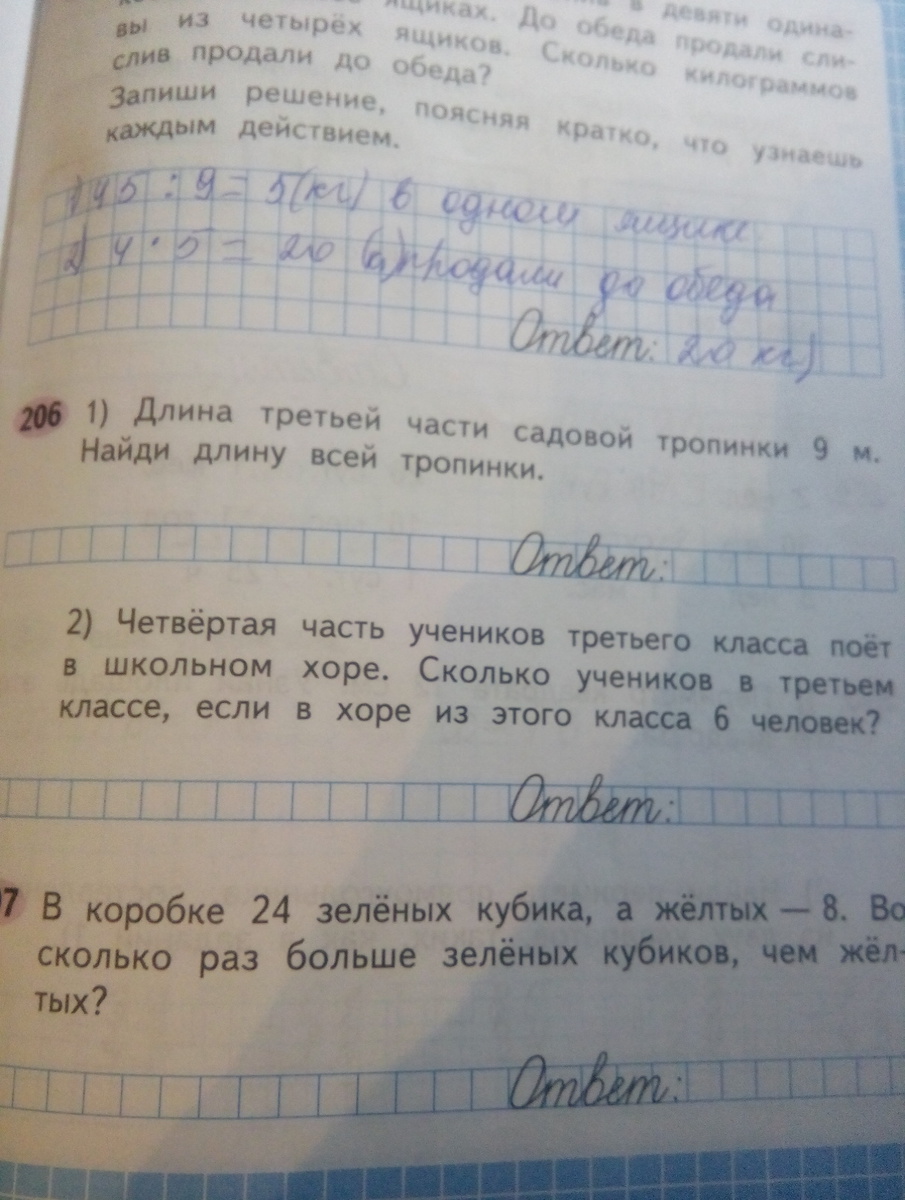 ящиках. До обеда продали сли-
вы из четырёх ящиков. Сколько килограммов
слив продали до обеда?
Запиши решение, поясняя кратко, что узнаешь
каждым действием.
1) 45 : 9 = 5 (кг) в одном ящике
2) 4 · 5 = 20 продали до обеда
Ответ: 20 кг)
206 1) Длина третьей части садовой тропинки 9 м.
Найди длину всей тропинки.
Ответ:
2) Четвёртая часть учеников третьего класса поёт
в школьном хоре. Сколько учеников в третьем
классе, если в хоре из этого класса 6 человек?
Ответ:
7 В коробке 24 зелёных кубика, а жёлтых — 8. Во
сколько раз больше зелёных кубиков, чем жёл-
тых?
Ответ: